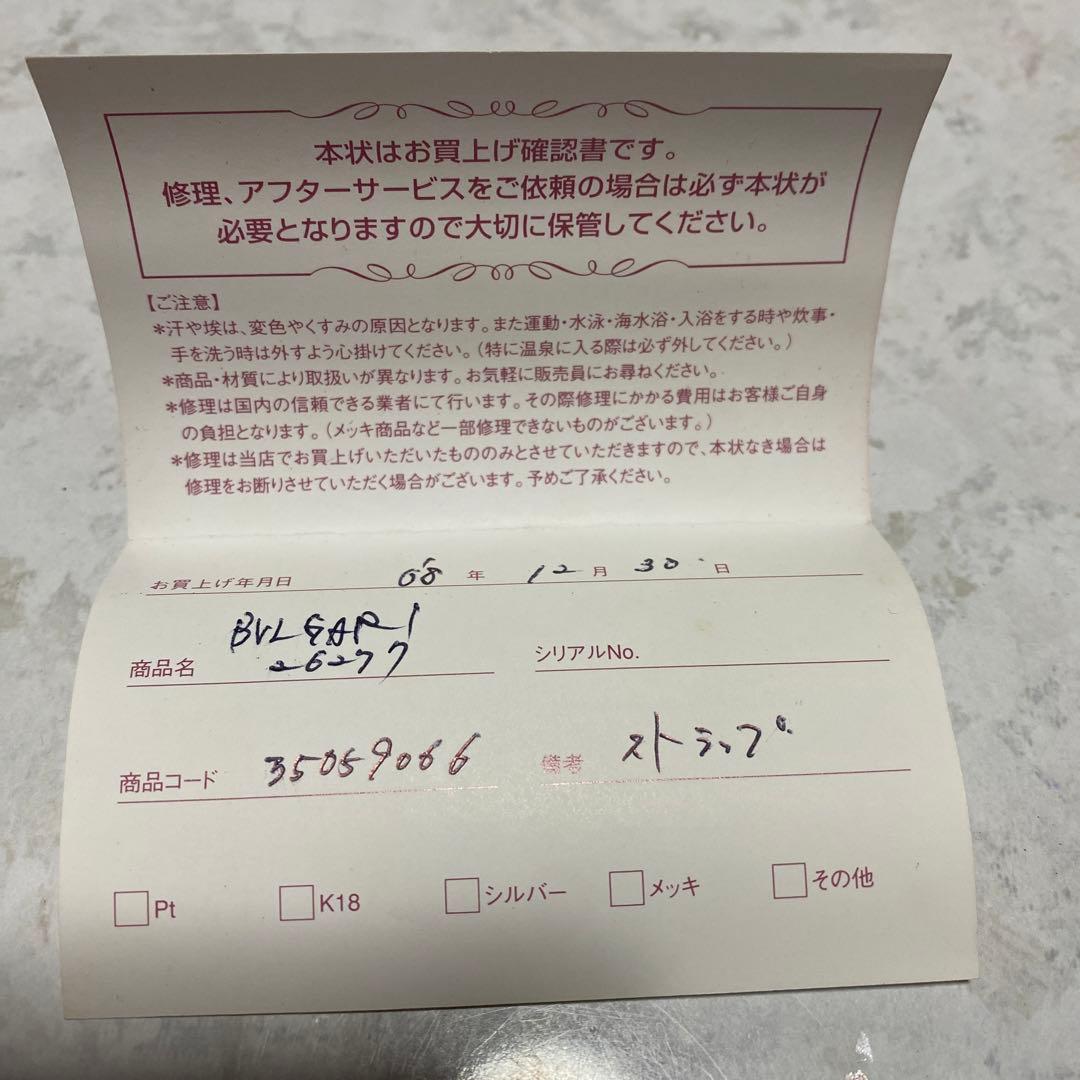 本状はお買上げ確認書です。
修理、アフターサービスをご依頼の場合は必ず本状が
必要となりますので大切に保管してください。
【ご注意】
*汗や埃は、変色やくすみの原因となります。また運動・水泳・海水浴・入浴をする時や炊事・
手を洗う時は外すよう心掛けてください。(特に温泉に入る際は必ず外してください。)
*商品・材質により取扱いが異なります。お気軽に販売員にお尋ねください。
*修理は国内の信頼できる業者にて行います。その際修理にかかる費用はお客様ご自身
の負担となります。(メッキ商品など一部修理できないものがございます。)
*修理は当店でお買上げいただいたもののみとさせていただきますので、本状なき場合は
修理をお断りさせていただく場合がございます。予めご了承ください。
お買上げ年月日 08 年 12 月 30 日
BVLGARI
商品名 26277 シリアルNo.
商品コード 35059066 備考 ストラップ
Pt K18 シルバー メッキ その他